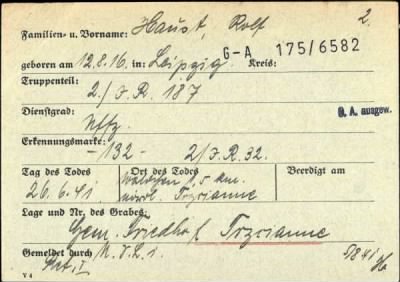 Familien- u. Vorname: Haust, Rolf 2.
geboren am 12.8.16. in: Leipzig. Kreis: G-A 175/6582
Truppenteil:
2/J.R. 187
Dienstgrad: G. A. ausgew.
Uffz.
Erkennungsmarke:
-132- 2/J.R. 32.
Tag des Todes Ort des Todes Beerdigt am
26.6.41 Wäldchen 1,5 km.
nördl. Trzcianne
Lage und Nr. des Grabes:
Gem. Friedhof Trzcianne
Gemeldet durch
V 4